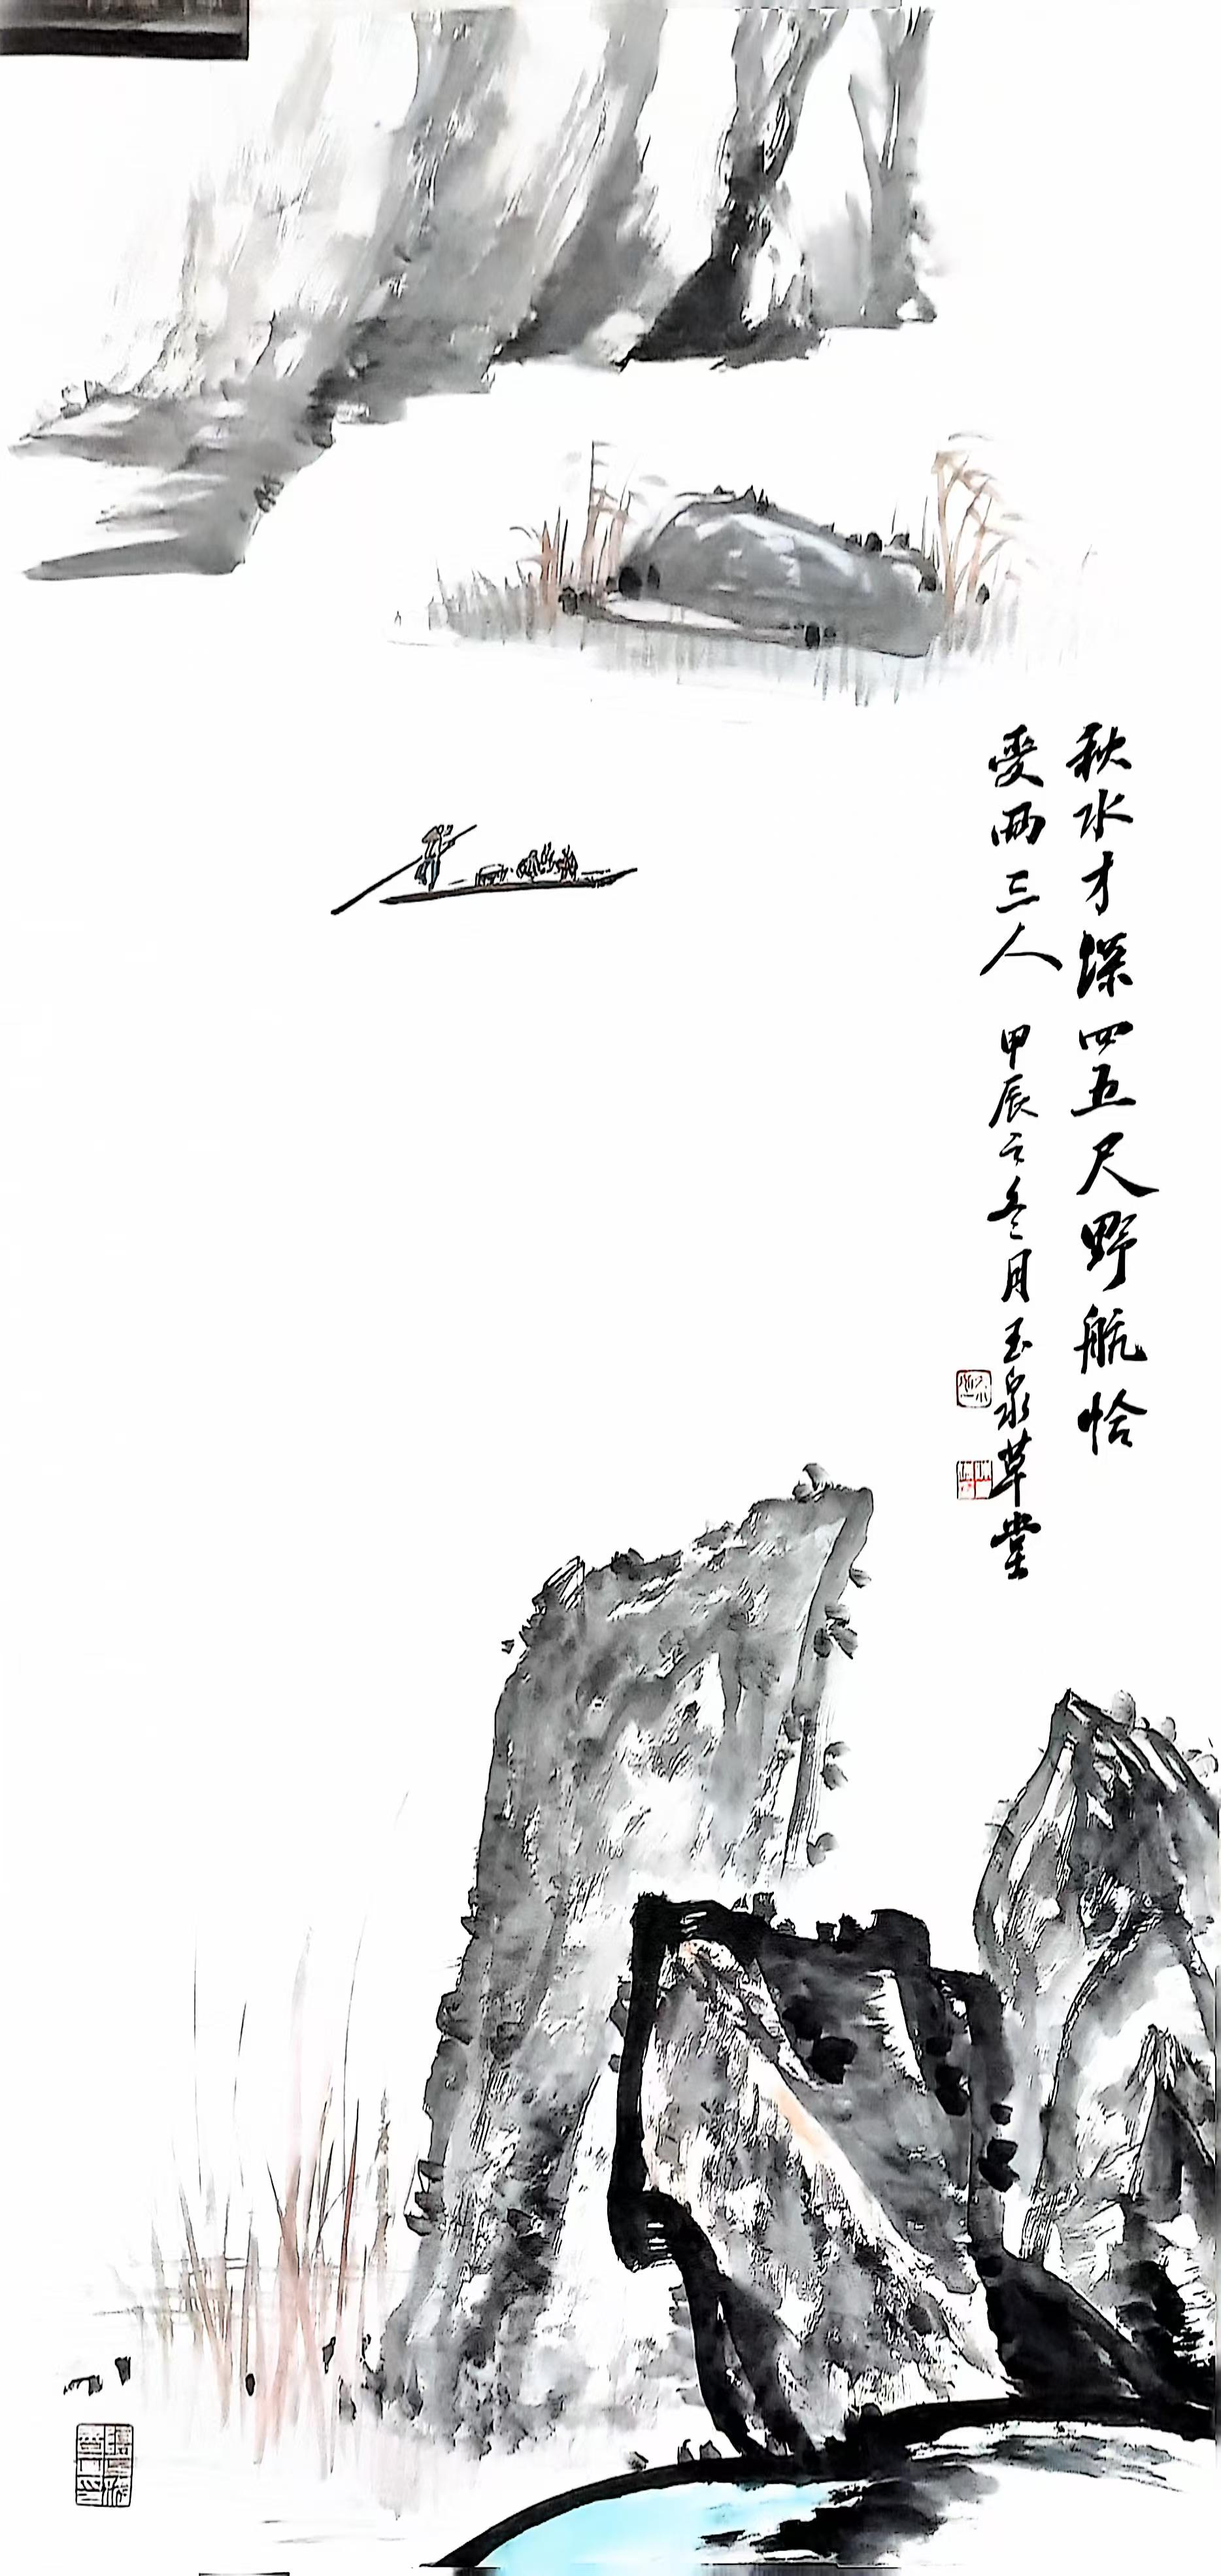 秋水才深四五尺野航恰
受两三人 甲辰之冬月玉泉草堂